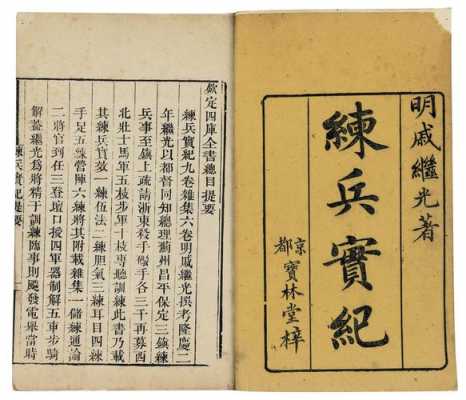 明戚繼光著
練兵實紀
京都寶林堂梓
欽定四庫全書總目提要
練兵實紀九卷雜集六卷明戚繼光撰考隆慶二
年繼光以都督同知總理薊州昌平保定三鎮練
兵事至鎮上疏請浙東殺手手各三千再募西
北壯士馬軍五枝步軍十枝專聽訓練此書乃載
其練兵實效一練伍法二練膽氣三練耳目四練
手足五練營陣六練將其附載雜集一儲練通論
二將官到任三登壇口授四軍器制解五車步騎
解蓋繼光為將精于訓練臨事則飈發電舉當時
練兵實紀提要